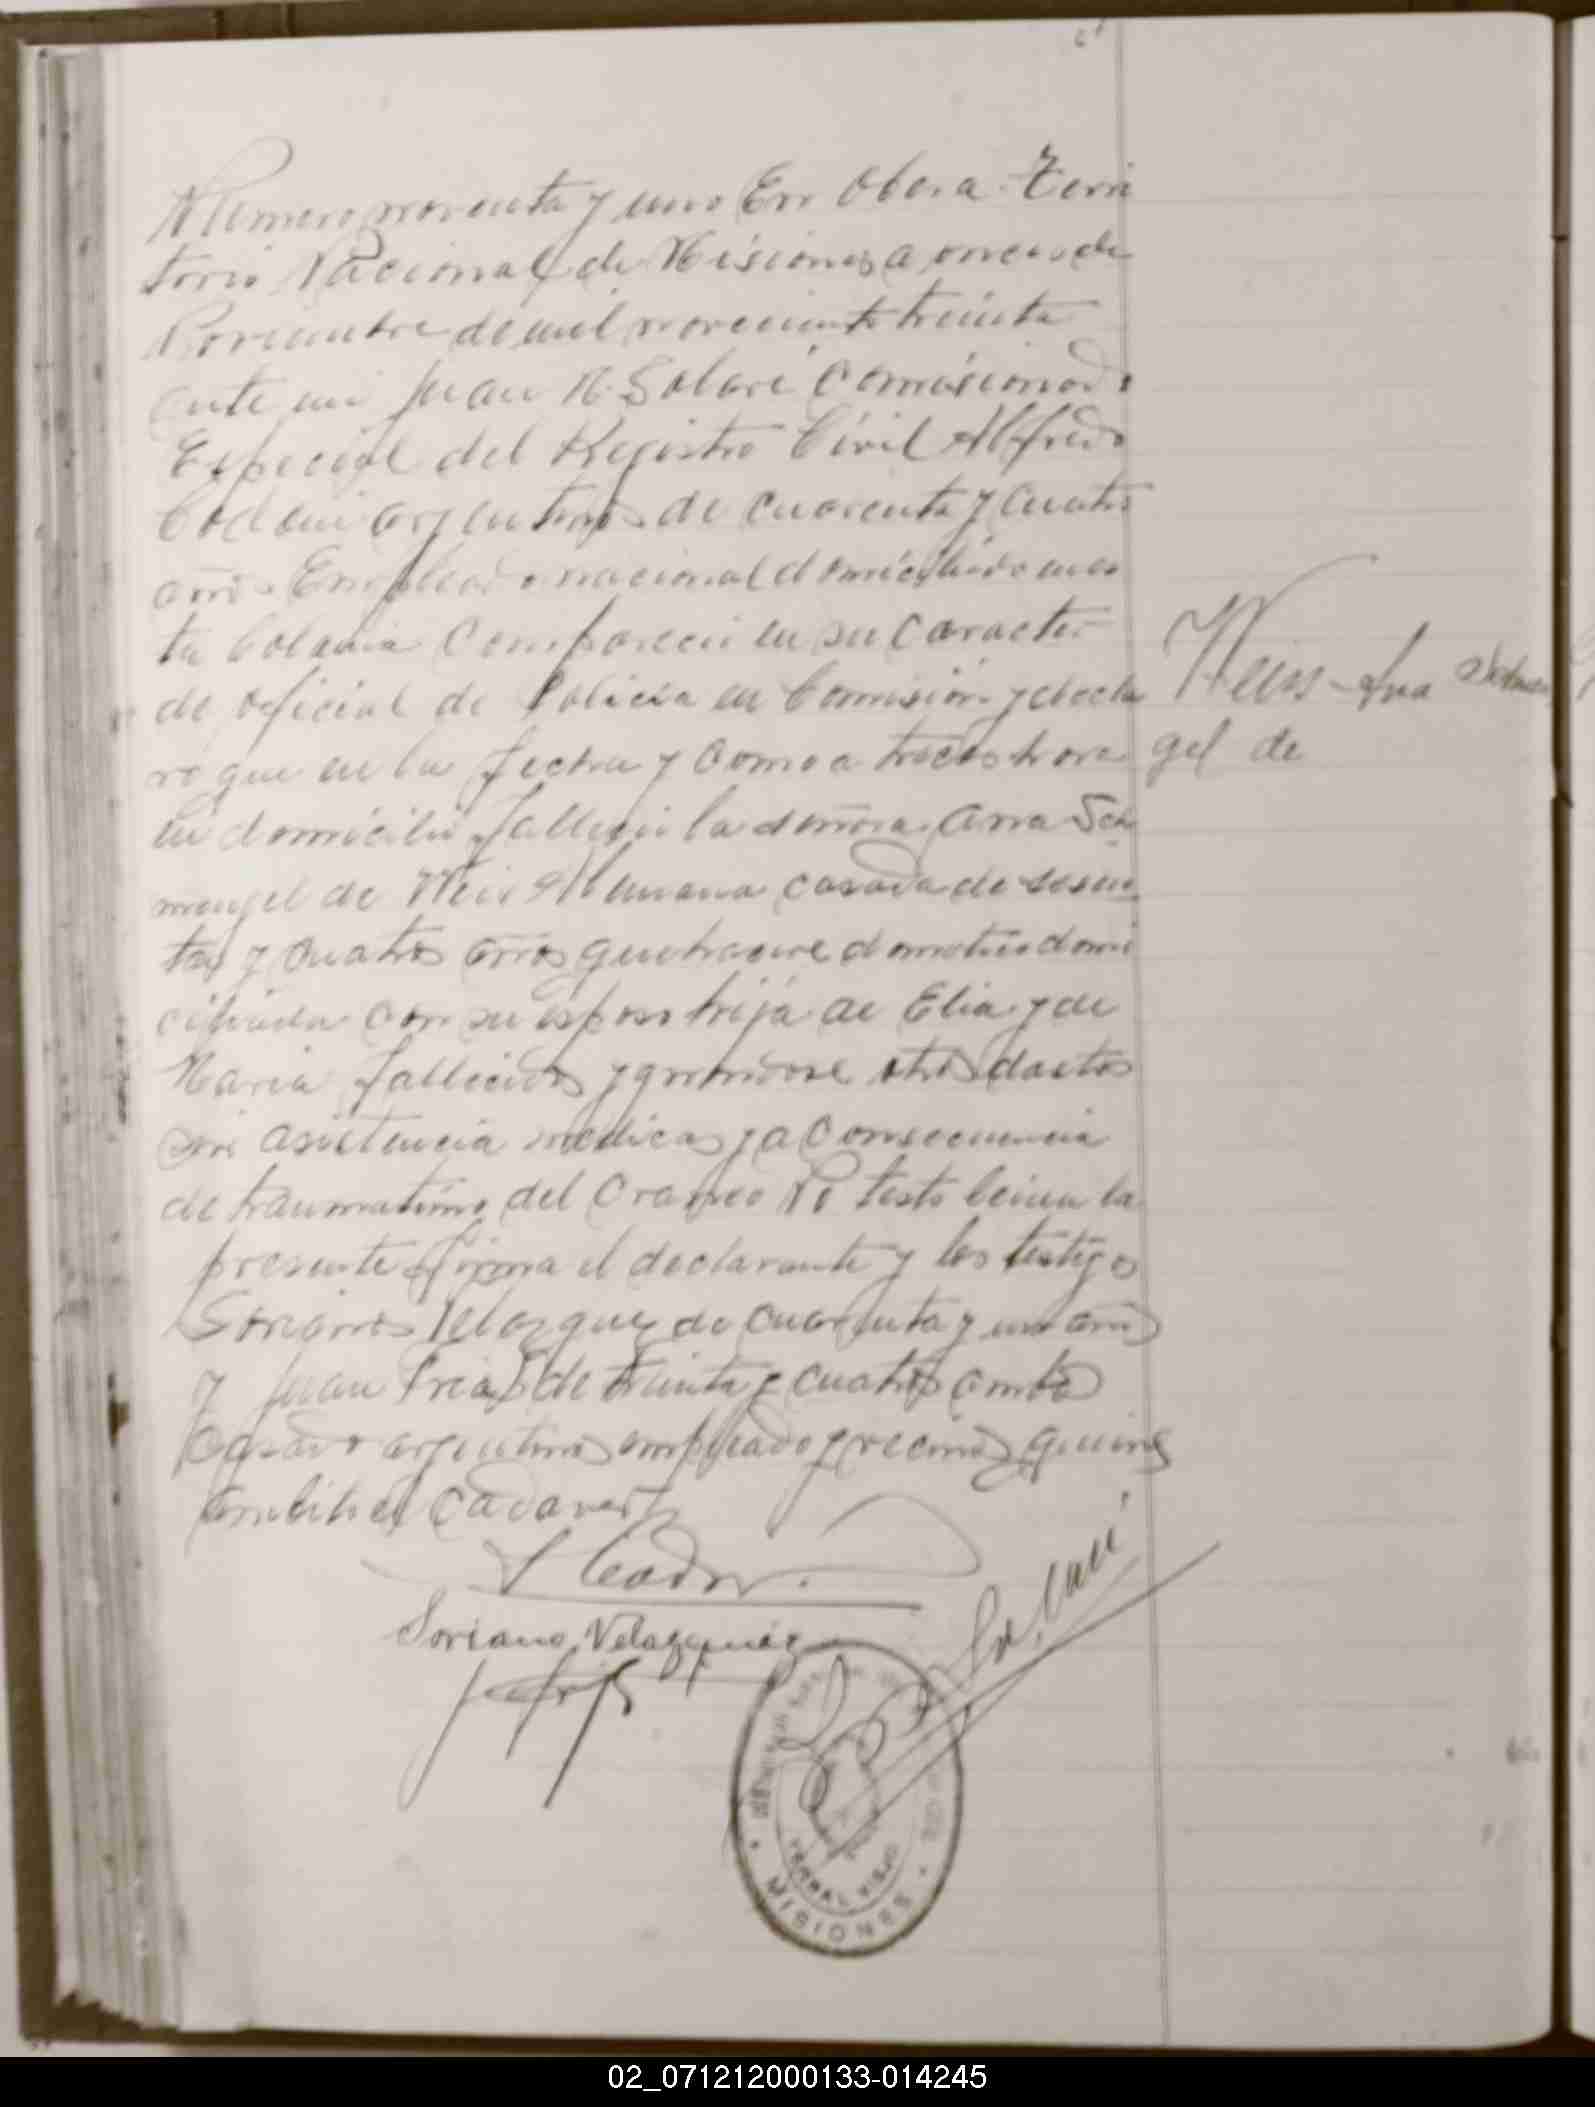 Numero noventa y uno En Obera Terri
torio Nacional de Misiones a once de
Noviembre de mil novecientos treinta
ante mi Juan N. Solari Comisionado
Especial del Registro Civil Alfredo
argentino de cuarenta y cuatro
años Empleado nacional domiciliado en es
ta Colonia Comparecio en su caracter
de oficial de Policia en Comisión y decla
ro que en la fecha y como a trece horas
en domicilio fallecio la señora Ana Sch
mengel de Weis Alemana casada de sesen
ta y cuatro años quehacere domestico domi
ciliada con su esposo hija de Elia y de
Maria fallecidos y ignorandose otros dactos
sin asistencia medica y a consecuencia
de traumatismo del Craneo No testo leida la
presente firma el declarante y los testigos
Soriano Velazquez de cuarenta y uno años
y Juan Frias de treinta y cuatro ambos
casado argentinos empleado y vecinos quienes
el cadaver
Soriano Velazquez
Solari
Weis Ana
gel de
YERBAL VIEJO
MISIONES
02_071212000133-014245